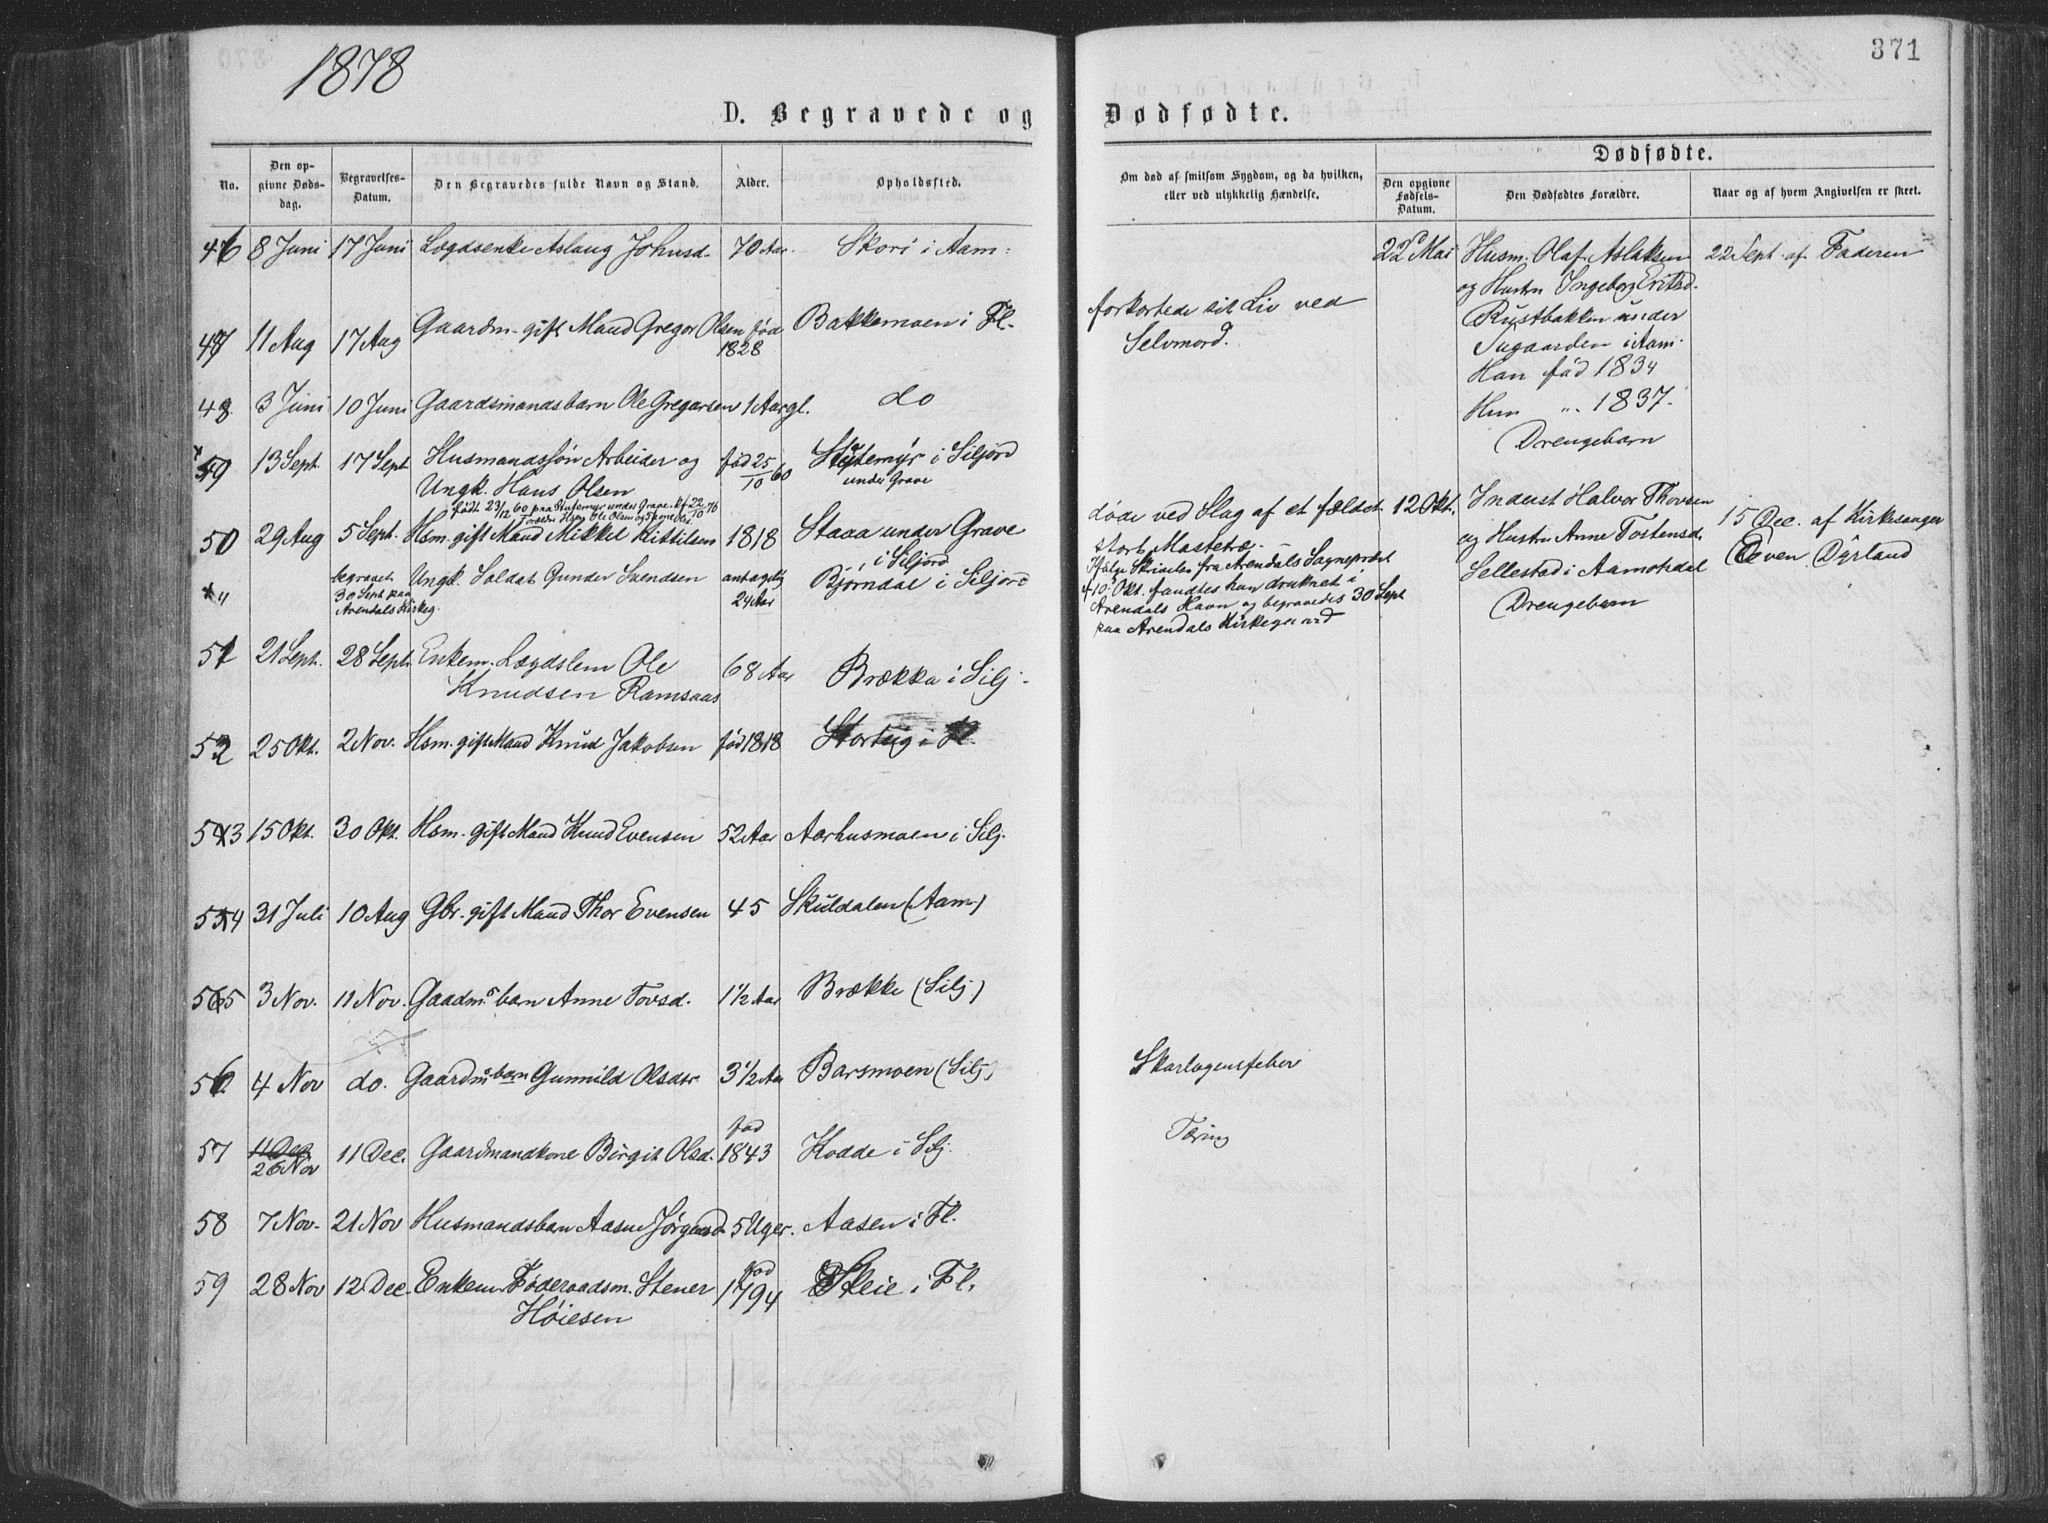 1878
371
D. Begravede og Dødfødte.
No.
Den opgivne Dødsdag.
Begravelses-Datum.
Den Begravedes fulde Navn og Stand.
Alder.
Opholdssted.
Om død af smitsom Sygdom, og da hvilken, eller ved ulykkelig Hændelse.
Dødfødte.
Den opgivne Fødsels-Datum.
Den Dødfødtes Forældre.
Naar og af hvem Angivelsen er skeet.
46 8 Juni 17 Juni Lægdsenke Aslaug Johnsd. 70 Aar. Skori i Aam:
47 11 Aug 17 Aug Gaardm. gift Mand Gregor Olsen fød 1828 Bakkemoen i Fl.
forkortede sit Liv ved
Selvmord.
48 3 Juni 10 Juni Gaardsmandsbarn Ole Gregarsen 1 Aar gl. do
49 13 Sept. 17 Sept. Husmandssøn Arbeider og fød 25/10 60 i Siljord
Ungk. Hans Olsen under Grave
50 29 Aug 5 Sept. Hsm. gift Mand Mikkel Kittilsen 1818 Staaa under Grave
i Siljord
døde ved Slag af et fældet
stort Mastetræ.
" begravet Ungk. Soldat Gunder Svendsen antagelig Bjørndal i Siljord
30 Sept paa 24 Aar
Arendals Kirkeg.
Ifølge Skrivelse fra Arendals Sogneprest
10 Okt. fandtes han druknet i
Arendals Havn og begravedes 30 Sept
paa Arendals Kirkegaard
51 21 Sept. 28 Sept. Enkem. Lægdslem Ole 68 Aar Brækka i Silj.
Knudsen Ramsaas
52 25 Okt. 2 Nov. Hsm. gift Mand Knud Jakobsen fød 1818
53 15 Okt. 30 Okt. Hsm. gift Mand Knud Evensen 52 Aar Aarhusmoen i Silj.
54 31 Juli 10 Aug Gbr. gift Mand Thor Evensen 45 Skuldalen (Aam.)
55 3 Nov. 11 Nov. Gaadms barn Anne Tovsd. 1 1/2 Aar Brække (Silj)
56 4 Nov do. Gaardmsbarn Gunnild Olsdr 3 1/2 Aar Barsmoen (Silj) Skarlagensfeber
57 11 Dec
26 Nov 11 Dec. Gaardmandkone Birgit Olsd. fød 1843 Kodde i Silj. Tæring
58 7 Nov. 21 Nov Husmandsbarn Aasne Jørgensd 5 Uger. Aasen i Fl.
59 28 Nov 12 Dec. Enkem. Føderaadsm. Stener fød 1794 Skeie i Fl.
Høiesen
22 Mai Husm. Olaf Aslaksen 22 Sept. af Faderen
og Hustru Ingeborg
Rustbakken under
i Aam.
Han fød 1834
Hun " 1837.
Drengebarn
12 Okt. Inderst Halvor Thovsen 15 Dec. af Kirkesanger
og Hustru Anne Tostensd. Even Dyrland
Sellestad i Aamotsdal
Drengebarn